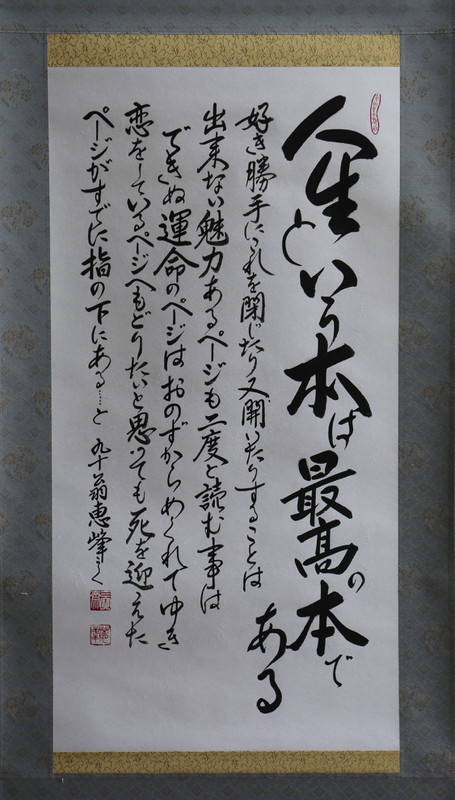 人生という本は最高の本で
ある
好き勝手にこれを閉じたり又開いたりすることは
出来ない魅力あるページも二度と読む事は
できぬ運命のページはおのずからめくれてゆき
恋をしているページへもどりたいと思っても死を迎えた
ページがすでに指の下にある……と 九十翁恵峰之